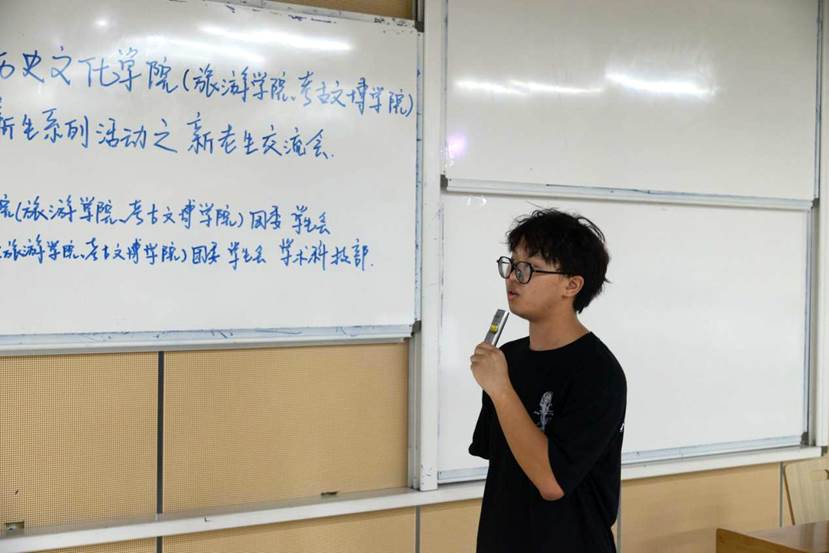 历史文化学院(旅游学院、考古文博学院)
新生系列活动之 新老生交流会.
院(旅游学院、考古文博学院)团委 学生会
(旅游学院、考古文博学院)团委 学生会 学术科技部.